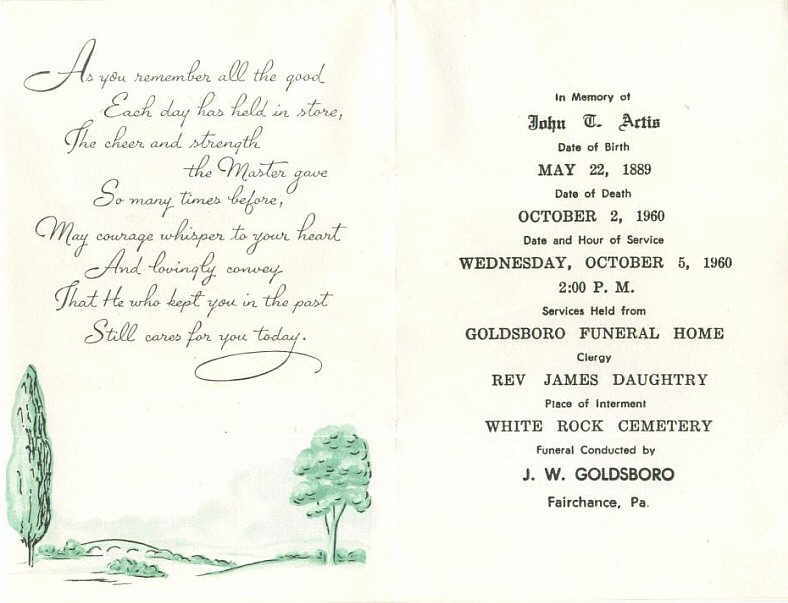 As you remember all the good
Each day has held in store,
The cheer and strength
the Master gave
So many times before,
May courage whisper to your heart
And lovingly convey
That He who kept you in the past
Still cares for you today.
In Memory of
John T. Artis
Date of Birth
MAY 22, 1889
Date of Death
OCTOBER 2, 1960
Date and Hour of Service
WEDNESDAY, OCTOBER 5, 1960
2:00 P. M.
Services Held from
GOLDSBORO FUNERAL HOME
Clergy
REV JAMES DAUGHTRY
Place of Interment
WHITE ROCK CEMETERY
Funeral Conducted by
J. W. GOLDSBORO
Fairchance, Pa.